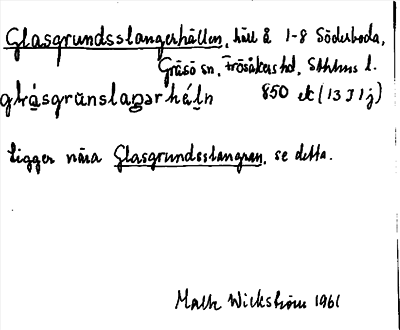 Glasgrundsslangerhällen, häll å 1-8 Söderboda,
Gräsö sn, Frösåkers hd, Sthlms l.
850 ek (13 I 1 j)
Ligger nära Glasgrundsslangran, se detta.
Wickström 1961